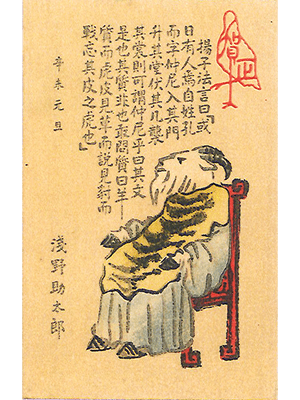 賀正
揚子法言曰「或
曰有人焉自姓孔
而字仲尼入其門
升其堂伏其几襲
其裳則可謂仲尼乎曰其文
是也其質非也敢問質曰羊
質而虎皮見草而説見豺而
戰忘其皮之虎也」
辛未元旦
淺野助太郎